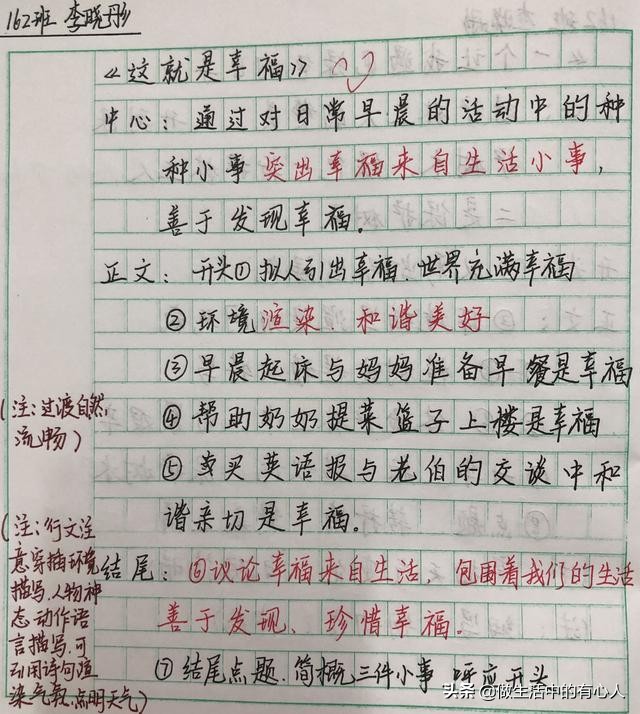 162班 李晓彤
《这就是幸福》
中心：通过对日常早晨的活动中的种
种小事突出幸福来自生活小事，
善于发现幸福。
正文：开头①拟人引出幸福、世界充满幸福
②环境渲染、和谐美好
③早晨起床与妈妈准备早餐是幸福
(注：过渡自然，
流畅)
④帮助奶奶提菜篮子上楼是幸福
⑤买英语报与老伯的交谈中和
谐亲切是幸福。
(注：行文注
意穿插环境
描写、人物神
态动作语
言描写，可
引用诗句渲
染气氛、点明天气)
结尾：⑥议论幸福来自生活，包围着我们的生活
善于发现、珍惜幸福。
⑦结尾点题、简概三件小事 呼应开头
头条 @做生活中的有心人